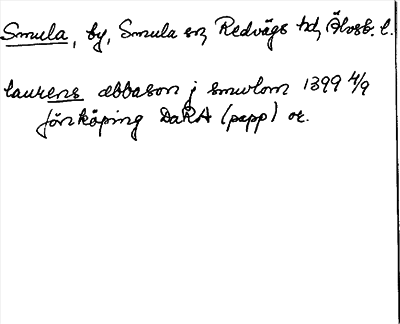 Smula, by, Smula sn, Redvägs hd, Älvsb. l.
laurens æbbason j smulom 1399 4/9
Jönköping DaRA (papp) or.